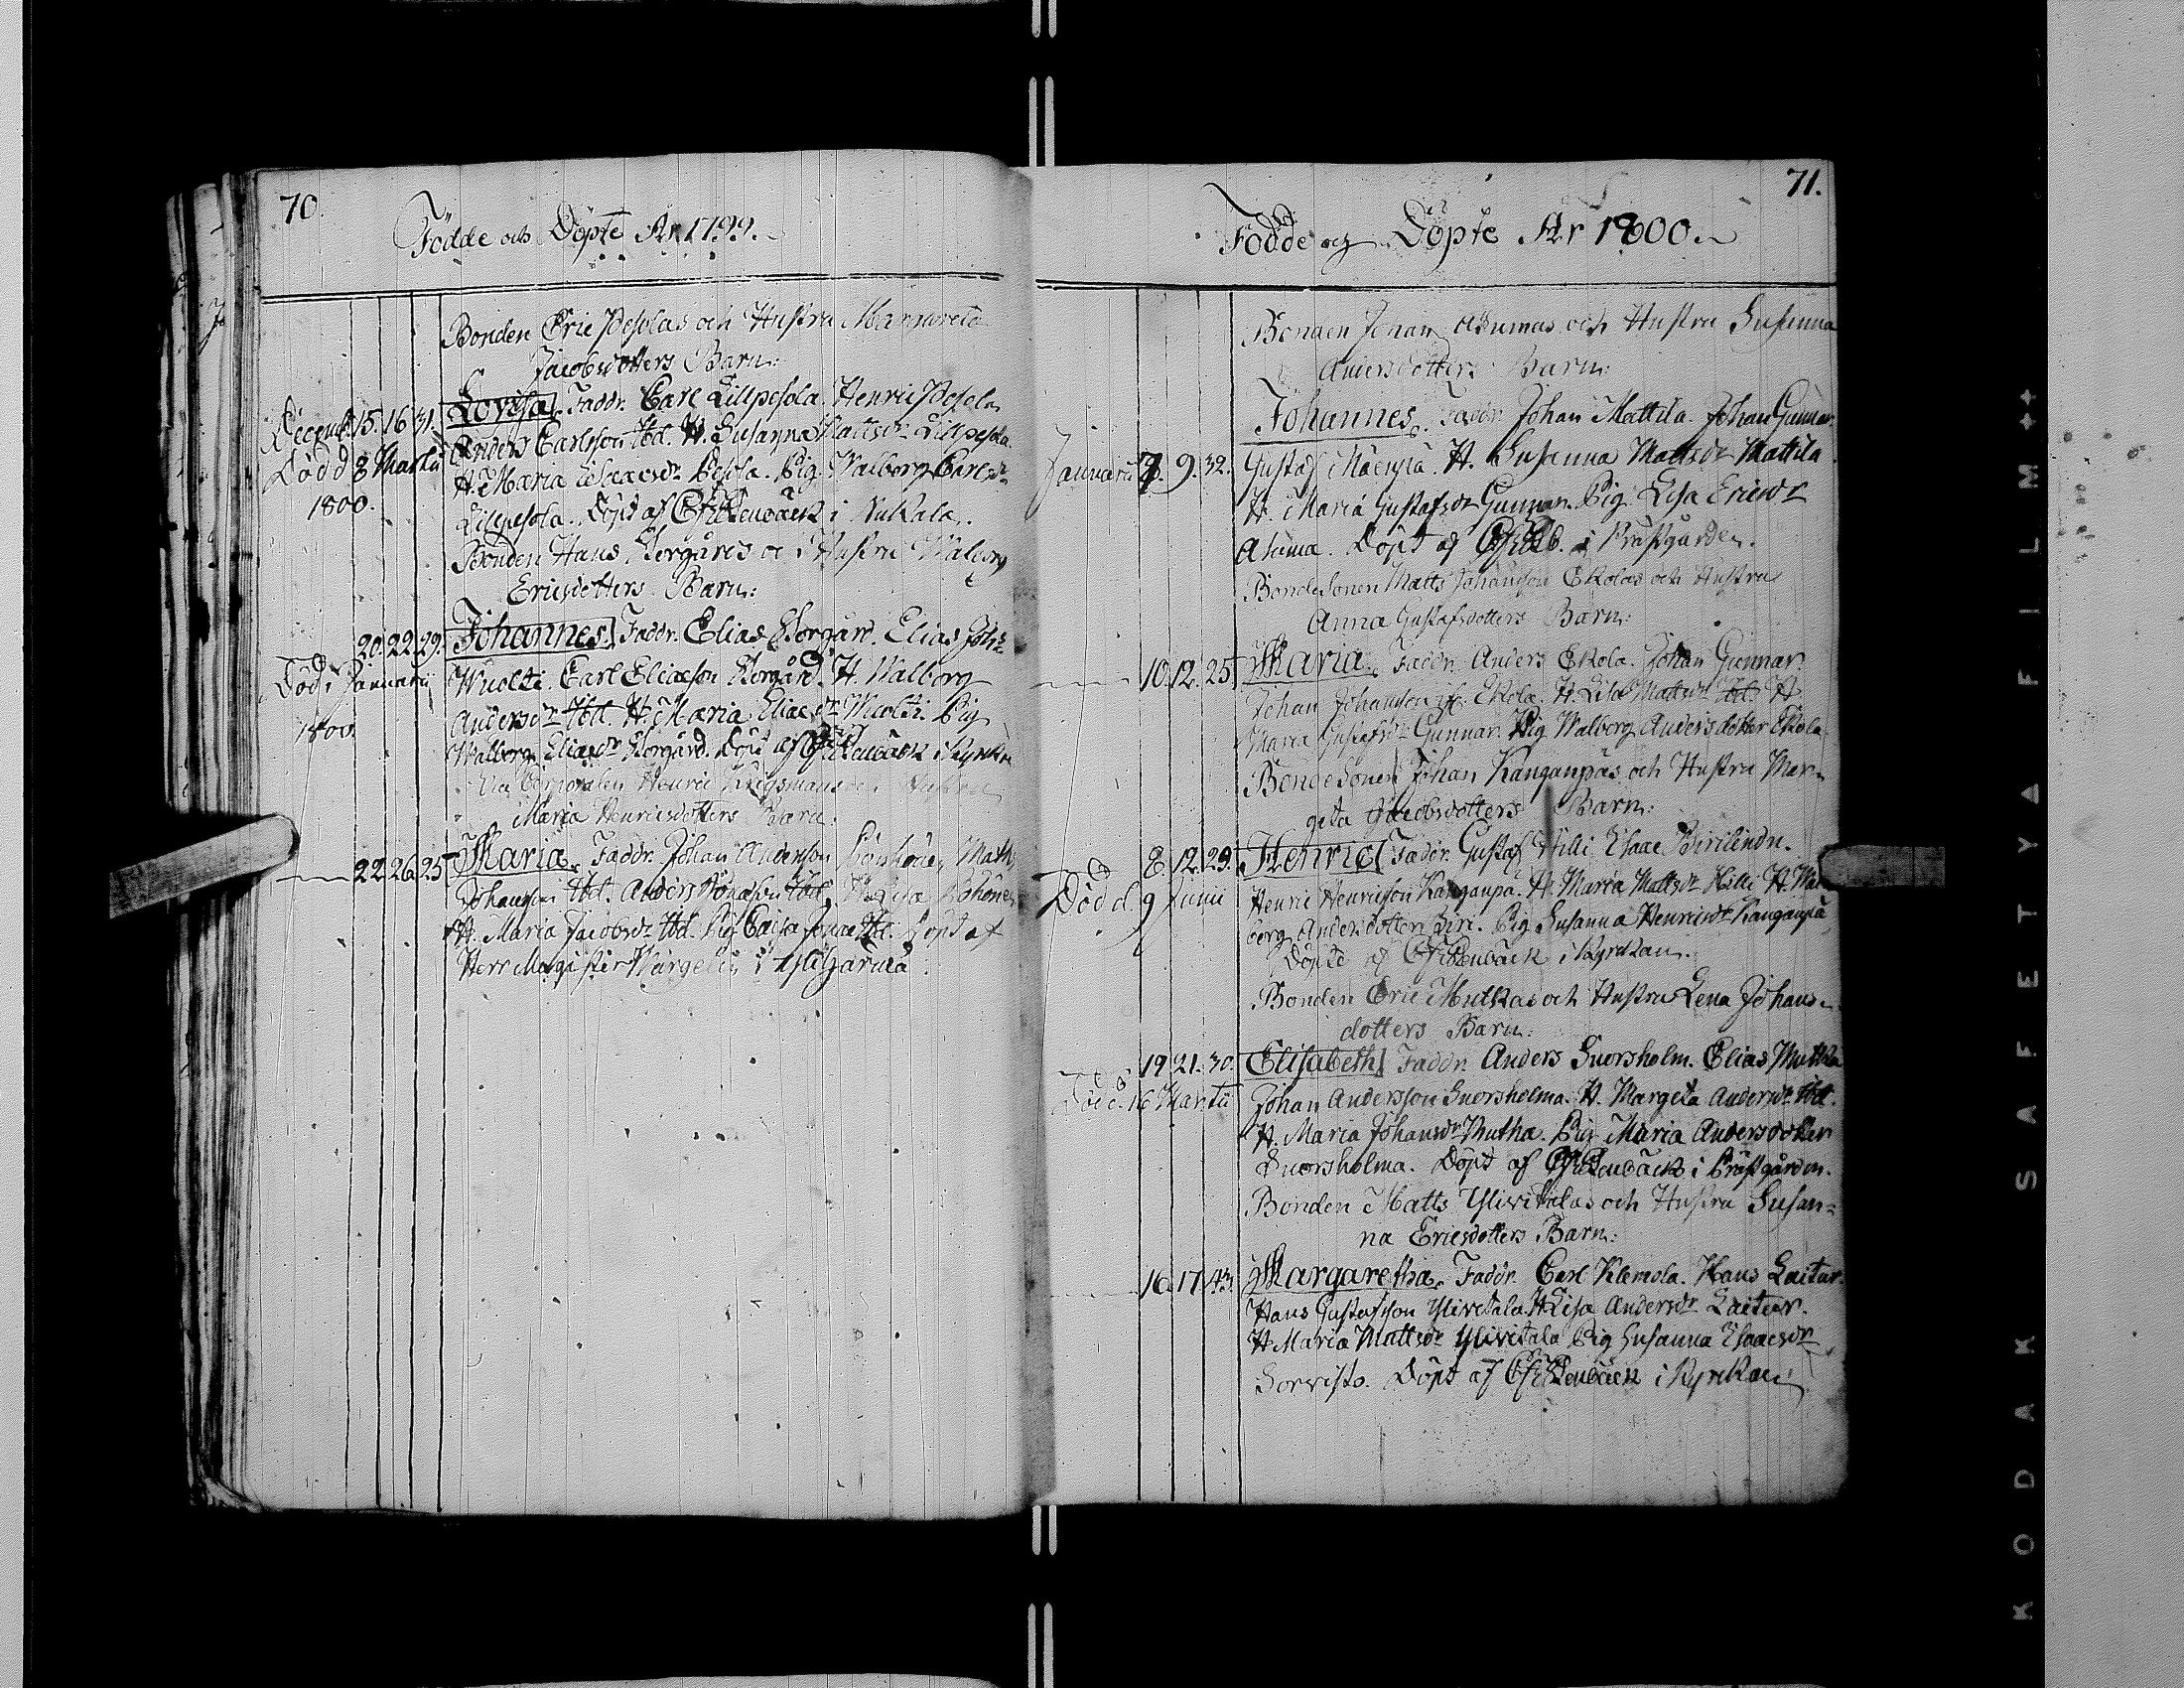 70.
Födde och Döpte År 1799.
Bonden Eric Pesolas och Hustru Margareta
Jacobsdotters Barn:
Decemb. 15. 16 31. Lovisa. Faddr. Carl Lillpesola. Henric Pesola
Anders Carlsson Ibd. H. Susanna Mattsdr Lillpesola.
Död d 8 Martii H. Maria Isaacsdr Pesola. Pig. Walborg Carlsdr
1800. Lillpesola. Döpt af i Kukala.
Bonden Hans Storgårds oc Hustru Walborg
Ericsdotters Barn:
20. 22. 29. Johannes. Faddr. Elias Storgård. Elias Joh:
Död i Januarii Wuolti. Carl Eliasson Storgård. H. Walborg
Andersdr Ibd. H. Maria Eliaedr Wuolti. Pig
1800 Walborg Eliaedr Storgård. Döpt af i Kyrkan
Corporalen Henric Krigsmans och Hustru
Maria Henricsdotters Barn:
22 26. 25 Maria. Faddr. Johan Anderson Matts
Johansson Ibd. Anders Ibd.
H. Maria Jacobsdr Ibd. Pig. Caisa Ibd. Döpt af
Herr Magister Wargelin i
71.
Födde och Döpte År 1800.
Bonden Johan Asumas och Hustru Susanna
Andersdotters Barn:
Johannes. Faddr. Johan Mattila. Johan Gunnar.
Januarii 7. 9. 32. Gustaf Mäenpä. H. Susanna Mattsdr Mattila
H. Maria Gustafsdr Gunnar. Pig. Lisa Ericsdr
Asuma. Döpt af i Prästgården.
Bondesonen Matts Johansson Skolas och Hustru
Anna Gustafsdotters Barn:
10. 12. 25. Maria. Faddr. Anders Skola. Johan Gunnar.
Johan Johansson Skola. H. Lisa Mattsdr Ibd. H
Maria Gustafsdr Gunnar. Pig Walborg Andersdotter Skola
Bondesonen Johan Kanganpäs och Hustru Mar-
geta Jacobsdotters Barn:
8. 12. 29. Henric Faddr. Gustaf Hilli Isaac Birilindr.
Död d. 9 Junii Henric Henricsson Kanganpä. H. Maria Mattsdr Hilli H. Wal
borg Andersdotter Piri. Pig Susanna Henricsdr Kanganpä
Döpte af i Kyrckan.
Bonden Eric Mutkas och Hustru Lena Johans-
dotters Barn:
19 21. 30. Elisabeth Faddr. Anders Snorsholm. Elias Mutka
Död d. 16 Martii Johan Andersson Snorsholma. H. Margeta Andersdr Ibd.
H. Maria Johansdr Mutka. Pig Maria Andersdotter
Snorsholma. Döpt af i Prästgården.
Bonden Matts Yliwitalas och Hustru Susan=
na Ericsdotters Barn:
16. 17. 43. Margaretha. Faddr. Carl Klemola. Hans Laitar.
Hans Gustafsson Yliwitala. H Lisa Andersdr Laitar.
H. Maria Mattsdr Yliwitala Pig Susanna Isaacsdr
Sorvisto. Döpt af i Kyrckan
KODAK SAFETY FILM